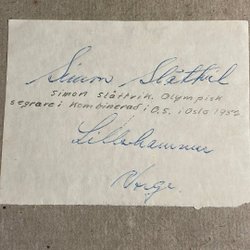 Simon Slåttvik
Simon Slåttvik. Olympisk
segrare i kombinerad i O.S. i Oslo 1952
Lillehammer
Norge.